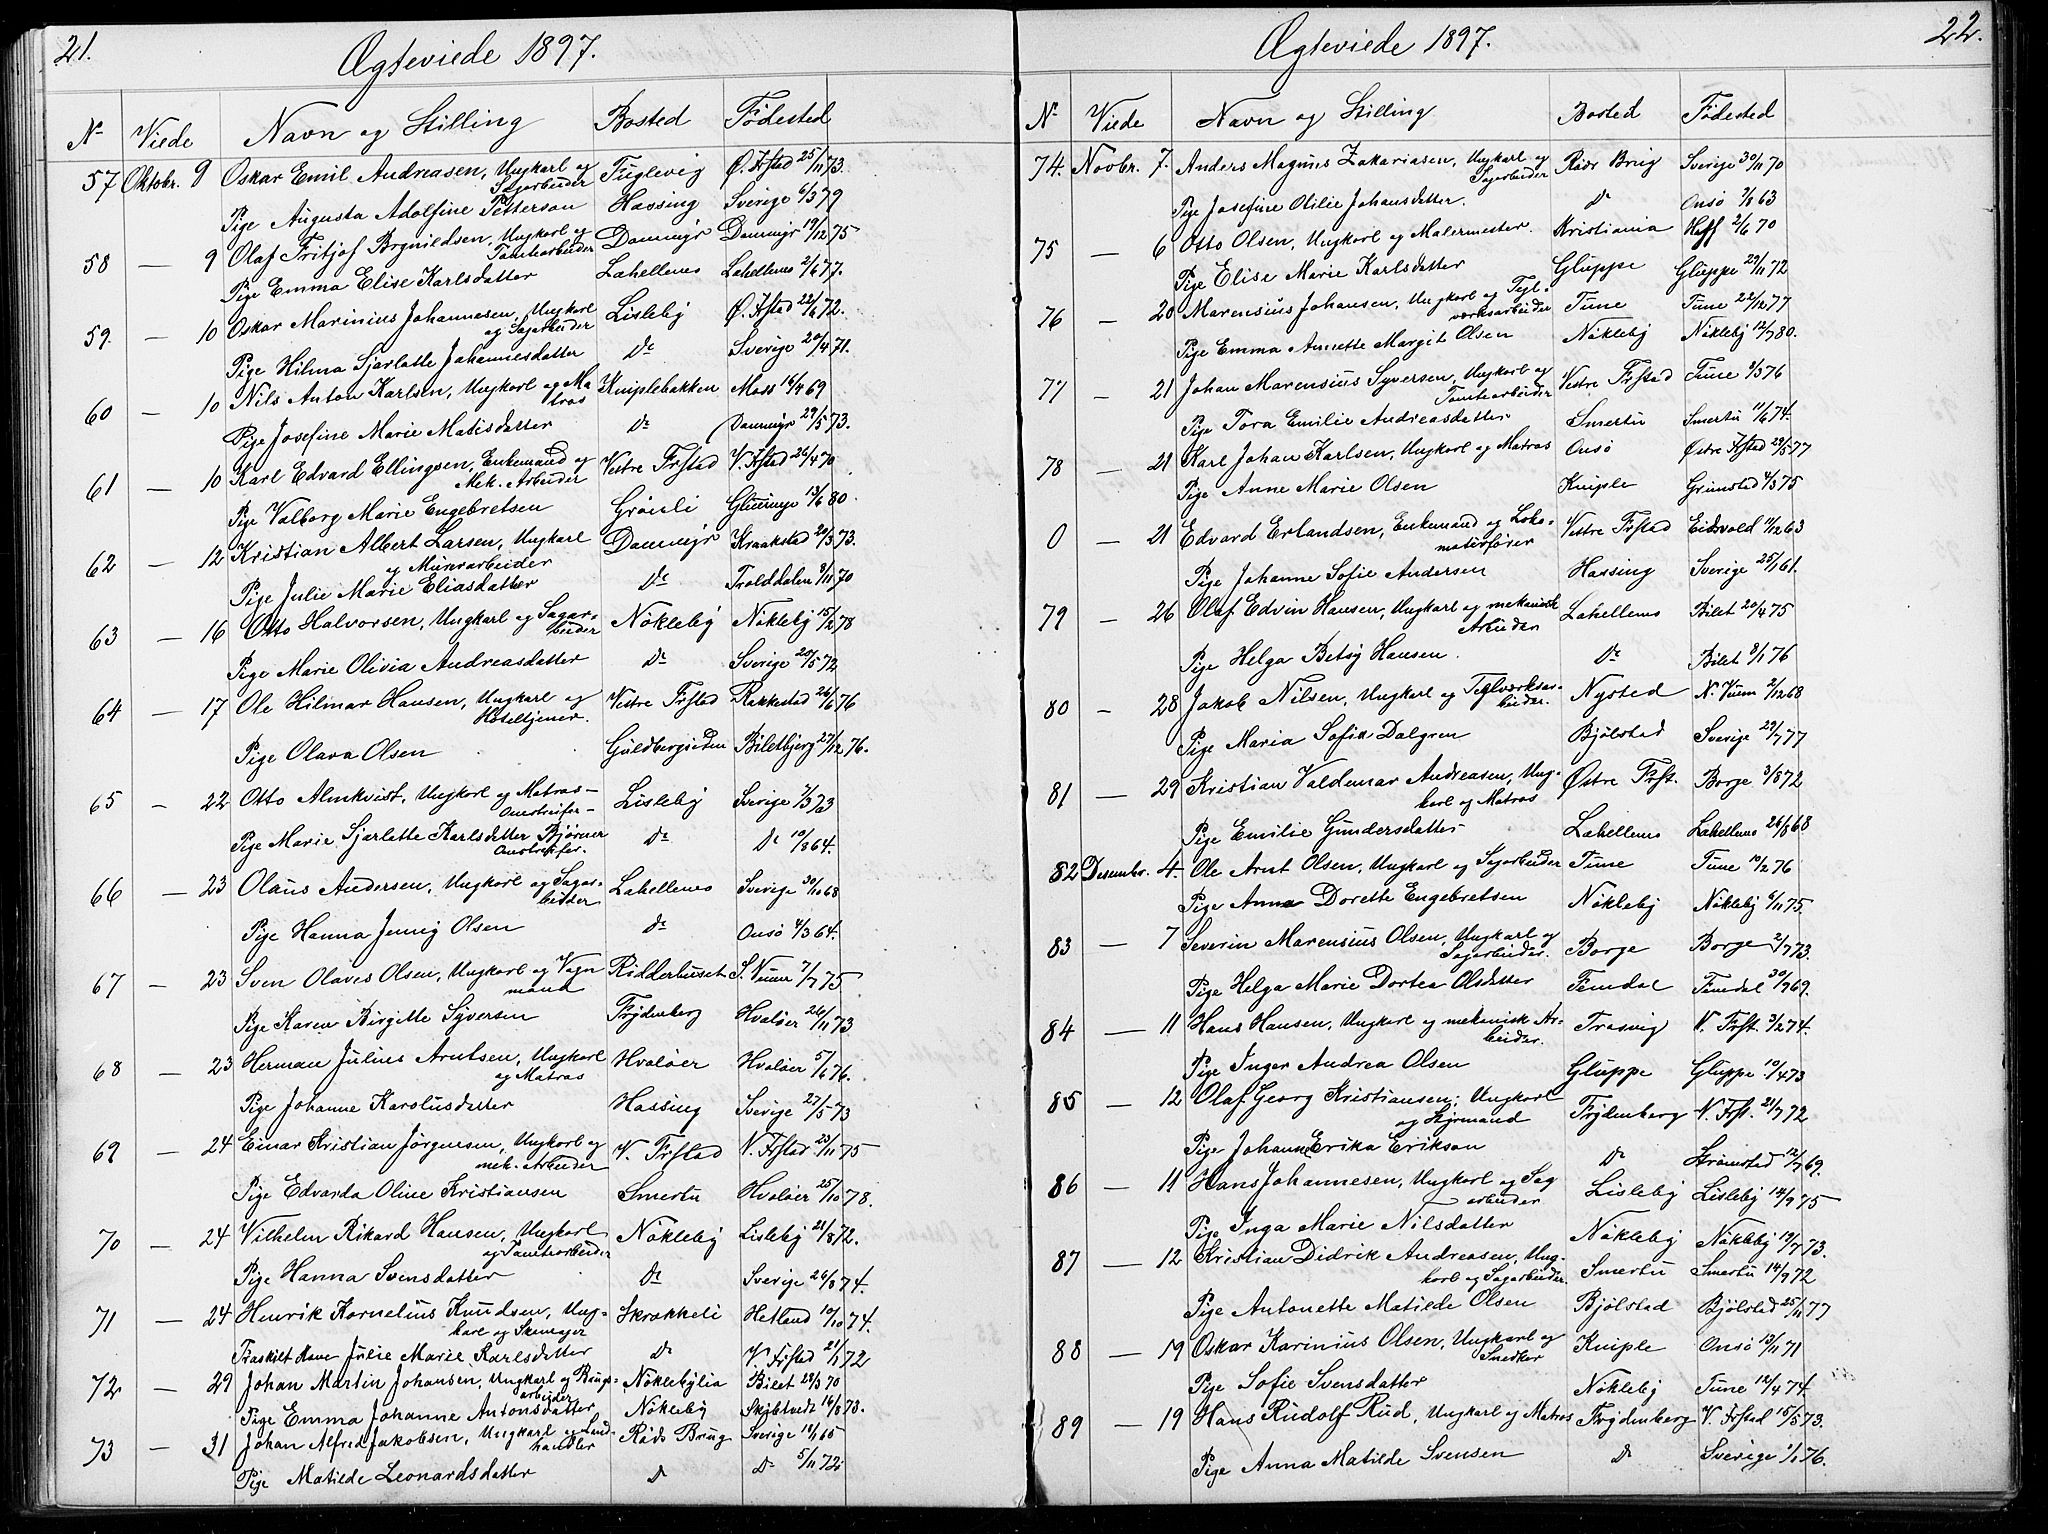 21.
Ægteviede 1897.
Nr Viede Navn og Stilling Bosted Fødested
57 Oktobr. 9 Oskar Emil Andreasen, Ungkarl og Fuglevig Ø. Frstad 25/11 73.
Sagarbeider
Pige Augusta Adolfine Petterson Hassing Sverige 6/3 79
58 — 9 Olaf Fritjof Brynildsen, Ungkarl og Dammyr Dammyr 19/12 75
Tomtearbeider
Pige Emma Elise Karlsdatter Lahellens Lahellens 2/6 77.
59. — 10 Oskar Marinius Johannesen, Ungkarl Lisleby Ø. Frstad 22/6 72.
og Sagarbeider
Pige Hilma Sjarlotte Johannesdatter Do Sverige 20/4 71.
60 — 10 Nils Anton Karlsen, Ungkarl og Ma Kniplebakken Moss 16/4 69
tros
Pige Josefine Marie Matisdatter Do Dammyr 29/5 73.
61 — 10 Karl Edvard Ellingsen, Enkemand og Vestre Frstad V. Frstad 26/4 70
Mek. Arbeider
Pige Valborg Marie Engebretsen Grønli 13/6 80.
62 — 12 Kristian Albert Larsen, Ungkarl Dammyr Kraakstad 20/3 73.
og Murerarbeider
Pige Julie Marie Eliasdatter Do Trolddalen 3/11 70
63 — 16 Otto Halvorsen, Ungkarl og Sagar- Nökleby Nökleby 15/2 78
beider
Pige Marie Olivia Andreasdatter Do Sverige 20/5 72
64 — 17 Ole Hilmar Hansen, Ungkarl og Vestre Frstad Rakkestad 26/6 76
Hoteltjener.
Pige Olava Olsen Guldbergsiden Biletbjerg 27/12 76.
65 — 22 Otto Almkvist, Ungkarl og Matros— Lisleby Sverige 7/3 73
Pige Marie Sjarlotte Karlsdatter Bjørner Do Do 10/8 64.
66 — 23 Olaus Andersen, Ungkarl og Sagar- Lahellens Sverige 30/10 68
beider
Pige Hanna Jenny Olsen Do Onsö 4/3 64.
67 — 23 Sven Olaves Olsen, Ungkarl og Vogn Ridderhuset S. Vium 7/7 75
mand
Pige Karen Birgitte Syversen Frydenberg Hvaløer 26/11 73
68 — 23 Herman Julius Arntsen, Ungkarl Hvaløer Hvaløer 5/6 76.
og Matros
Pige Johanne Karolusdatter Hassing Sverige 27/5 73
69 — 24 Einar Kristian Jörgensen, Ungkarl og V. Frstad V. Frstad 23/11 75
mek. Arbeider
Pige Edvarda Oline Kristiansen Smertu Hvaløer 25/10 78.
70 — 24 Vilhelm Rikard Hansen, Ungkarl Nökleby Lisleby 21/8 72.
og Tomtearbeider
Pige Hanna Svensdatter Do Sverige 26/8 74.
71 — 24 Henrik Kornelius Knudsen, Ung- Skrokkeli Hetland 10/10 74.
karl og Skomager
Fraskilt Kone Julie Marie Karlsdatter Do V. Frstad 21/1 72
72 — 29 Johan Martin Johansen, Ungkarl og Brugs- Nöklebylia Bilet 28/3 70
arbeider
Pige Emma Johanne Antonsdatter Nökleby Skjebtvedt 14/8 73.
73 — 31 Johan Alfred Jakobsen, Ungkarl og Land- Röds Brug Sverige 14/1 65
handler
Pige Matilde Leonardsdatter Do Do 5/11 72.
22.
Ægteviede 1897.
Nr Viede Navn og Stilling Bosted Fødested
74. Novbr. 7. Anders Magnus Zakariasen, Ungkarl og Röds Brug Sverige 30/11 70
Sagarbeider
Pige Josefine Otilie Johansdatter. Do Onsö 7/8 63
75 — 6 Otto Olsen, Ungkarl og Malermester. Kristiania 2/6 70
Pige Elise Marie Karlsdatter Gluppe Gluppe 29/11 72
76 — 20 Marensius Johansen, Ungkarl og Tegl- Tune Tune 22/12 77
værksarbeider
Pige Emma Annette Margit Olsen Nökleby Nökleby 12/7 80.
77 — 21 Johan Marensius Syversen, Ungkarl og Vestre Frstad Tune 9/3 76
Tomtearbeider
Pige Tora Emilie Andreasdatter Smertu Smertu 11/6 74.
78 — 21 Karl Johan Karlsen, Ungkarl og Matros Onsö Østre Frstad 29/5 77
Pige Anne Marie Olsen Kniple Grimstad 4/3 75
0 — 21 Edvard Erlandsen, Enkemand og Loko- Vestre Frstad Eidsvold 11/12 63
motivfører
Pige Johanne Sofie Andersen Hassing Sverige 25/1 61.
79 — 26 Olaf Edvin Hansen, Ungkarl og mekanisk Lahellens Bilet 20/4 75
Arbeider
Pige Helga Betsy Hansen. Do Bilet 8/1 76
80 — 28 Jakob Nilsen, Ungkarl og Teglværksar- Nysted N. Vium 2/12 68
beider.
Pige Maria Sofia Dalgren Bjölstad Sverige 29/7 77
81 — 29 Kristian Valdemar Andreasen, Ung- Østre Frst. Borge 3/8 72
karl og Matros
Pige Emilie Gundersdatter Lahellens Lahellens 26/8 68
82 Desembr. 4. Ole Arnt Olsen, Ungkarl og Sagarbeider Tune Tune 19/2 76
Pige Anna Dorette Engebretsen Nökleby Nökleby 6/11 75.
83 — 7 Severin Marensius Olsen, Ungkarl og Borge Borge 2/7 73.
Sagarbeider.
Pige Helga Marie Dortea Olsdatter Femdal Femdal 30/9 69.
84 — 11 Hans Hansen, Ungkarl og mekanisk Ar- Trosvig V. Frst. 3/2 74.
beider.
Pige Inger Andrea Olsen Gluppe Gluppe 10/4 73
85 — 12 Olaf Georg Kristiansen, Ungkarl Frydenberg V. Frst. 21/7 72
og Styrmand
Pige Johanne Erika Erikson Do Strömstad 12/7 69.
86 — 11 Hans Johannesen, Ungkarl og Sag Lisleby Lisleby 14/9 75
arbeider
Pige Inga Marie Nilsdatter Nökleby Nökleby 19/7 73.
87 — 12 Kristian Didrik Andreasen, Ung- Smertu Smertu 14/9 72
karl og Sagarbeider
Pige Antonette Matilde Olsen Bjölstad Bjölstad 25/11 77
88 — 19 Oskar Karinius Olsen, Ungkarl og Kniple Onsö 13/11 71
Snedker
Pige Sofie Svensdatter Nökleby Tune 12/4 74.
89 — 19 Hans Rudolf Rud, Ungkarl og Matros Frydenberg V. Frstad 15/5 73.
Pige Anna Matilde Svensen Do Sverige 1/1 76.